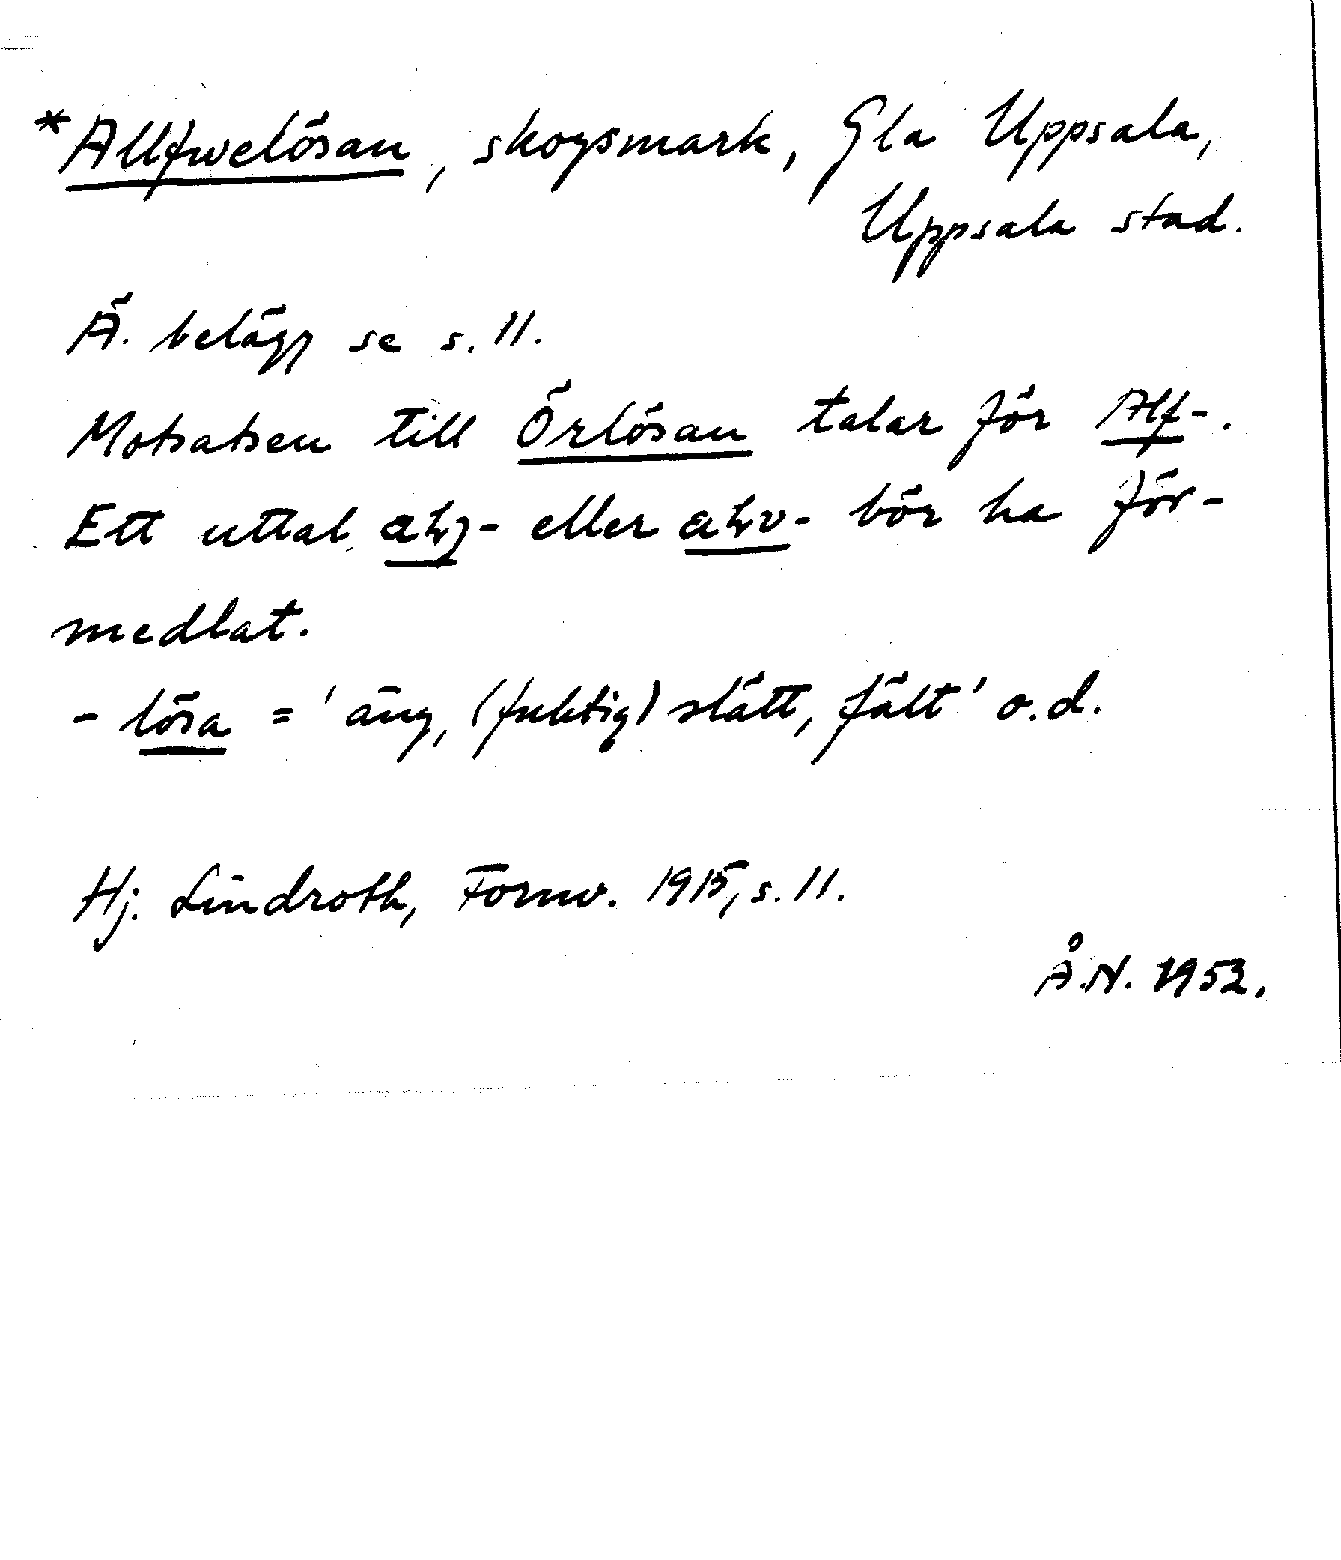 *Allfwelösan, skogsmark, Gla Uppsala,
Uppsala stad.
Ä. belägg se s. 11.
Motsatsen till Örlösan talar för Alf-.
Ett uttal - eller - bör ha för-
medlat.
- lösa = 'äng, (fuktig) slätt, fält' o.d.
Hj. Lindroth, Fornv. 1915, s. 11.
Å.N. 1952.